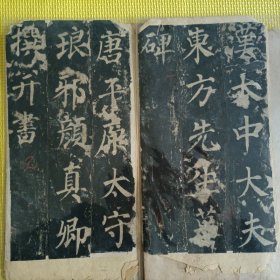 漢太中大夫
東方先生墓
碑
唐平原太守
琅邪顏真卿
撰并書